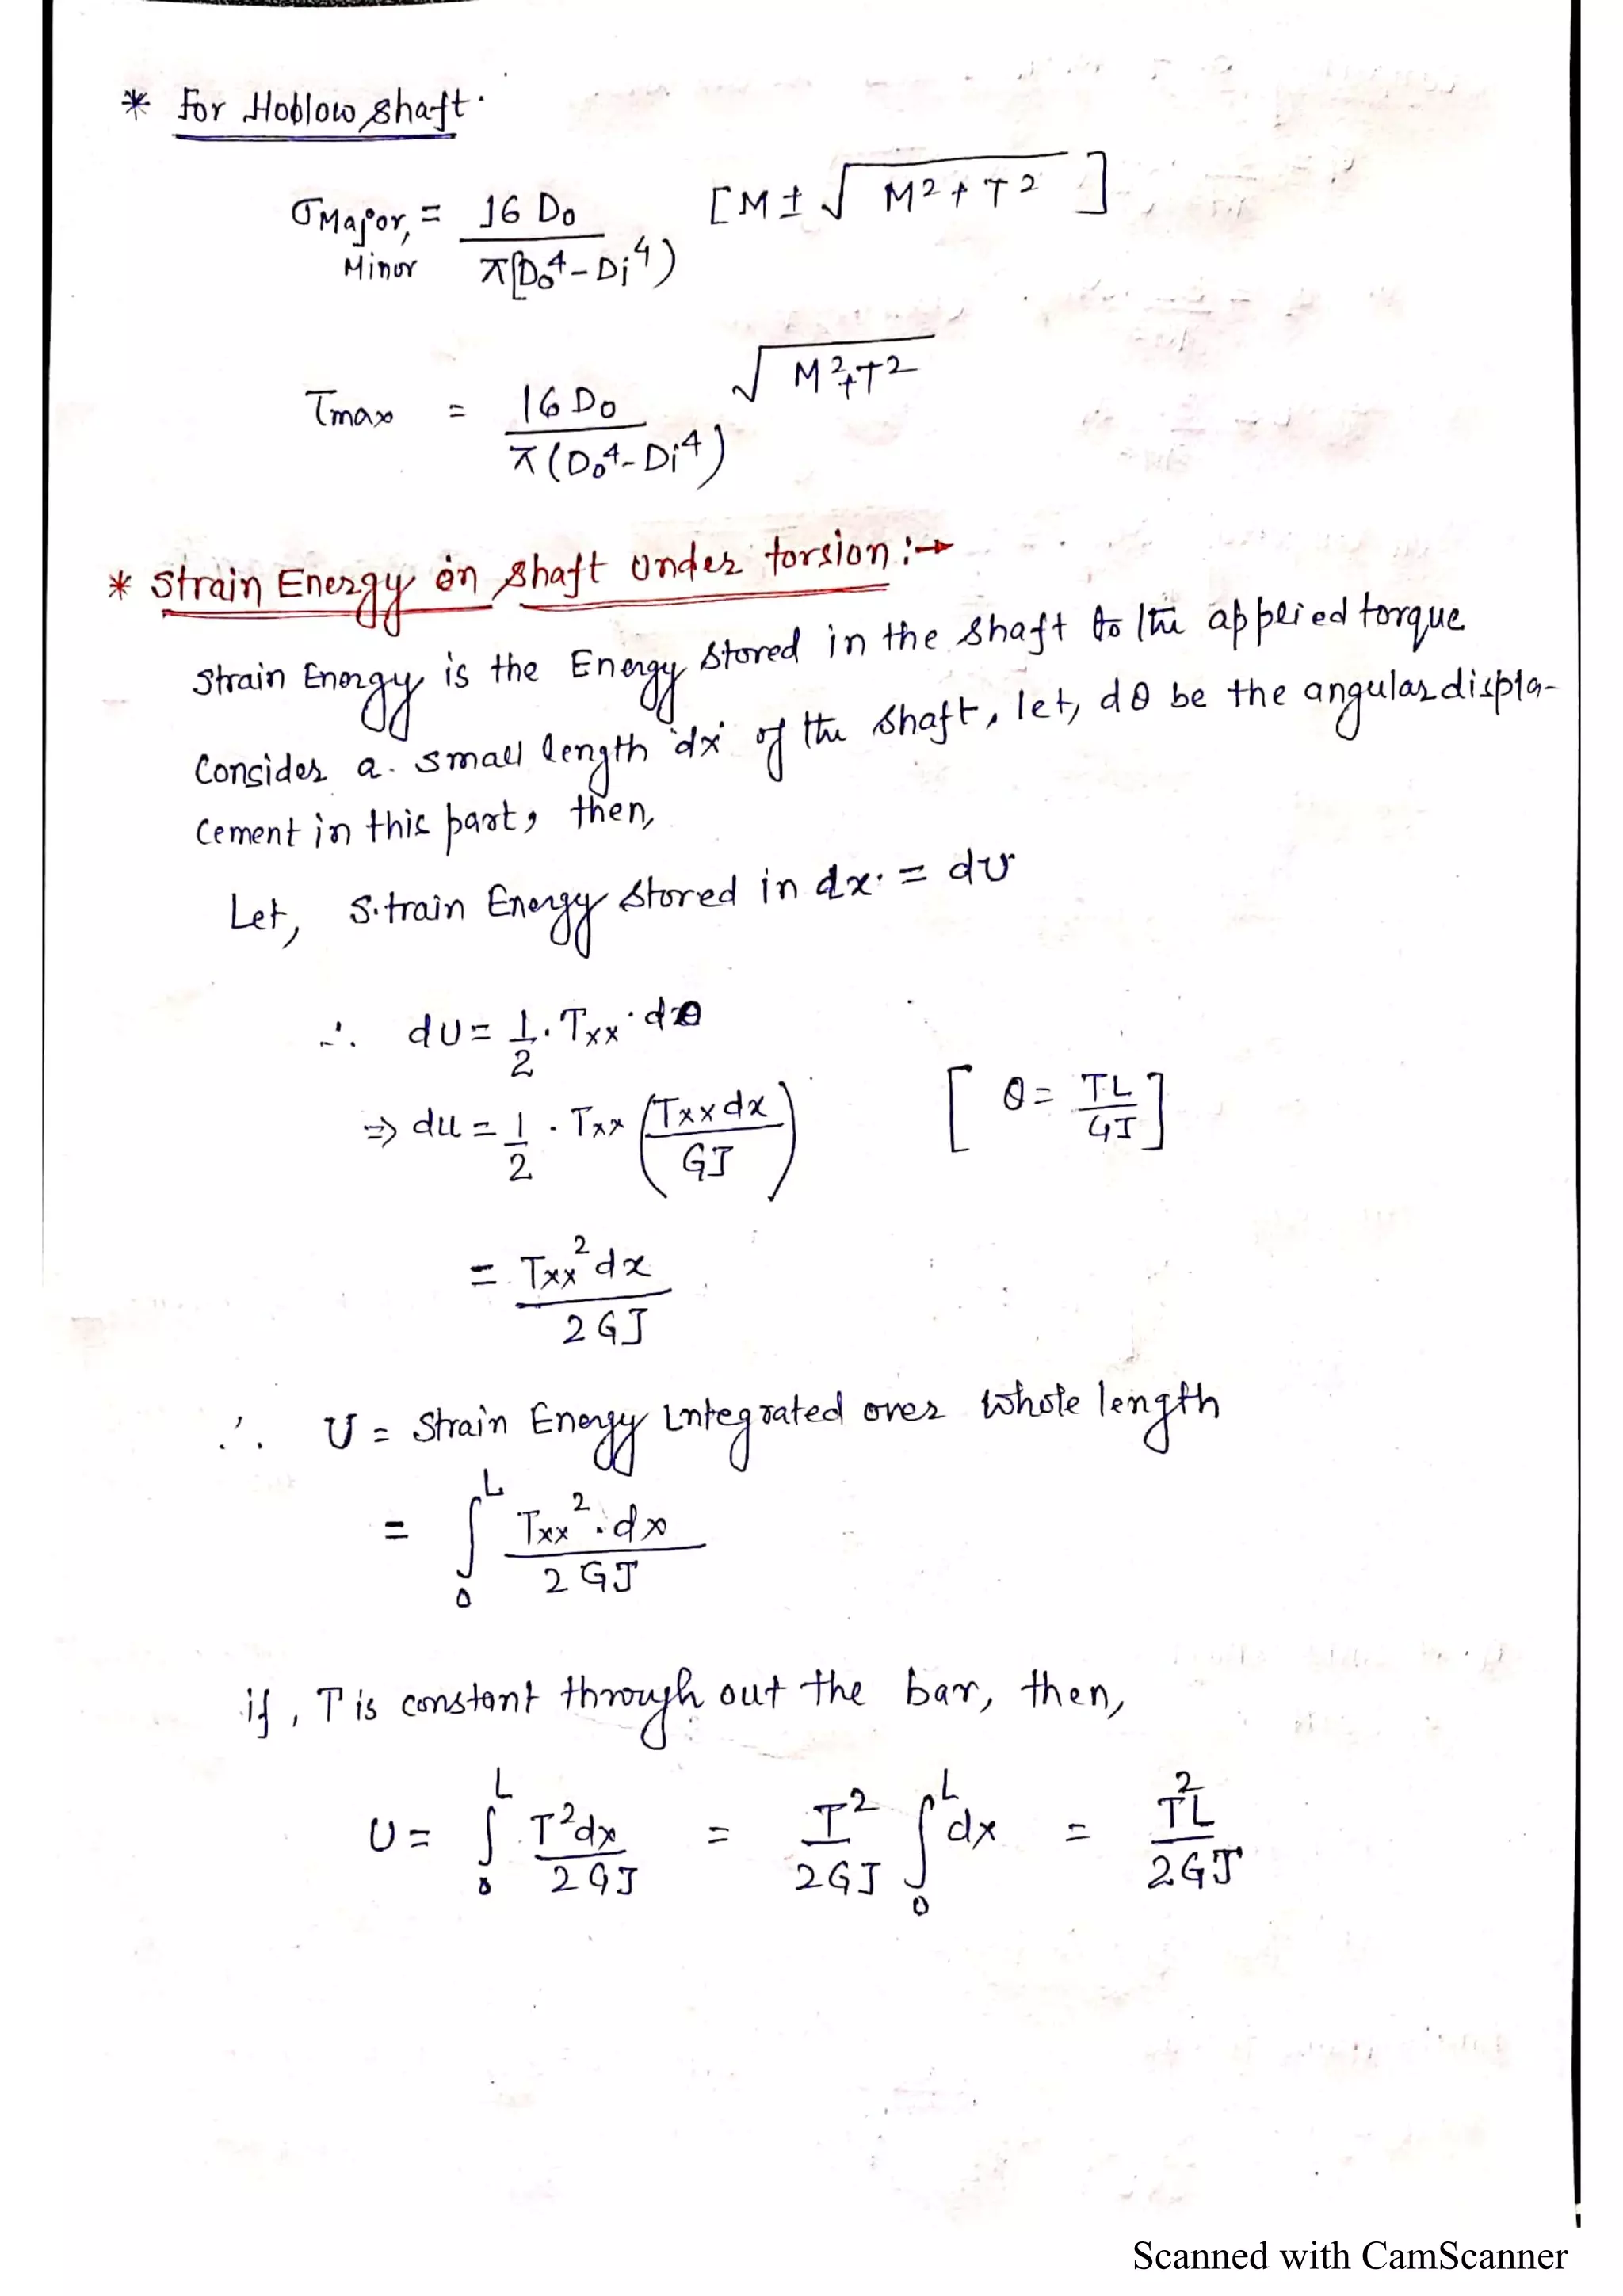 * For Hollow shaft.
σMajor, Minor = 16 Do / π[Do⁴ - Di⁴) [M ± √M² + T²]
τmax = 16 Do / π(Do⁴ - Di⁴) √M² + T²
* Strain Energy in shaft under torsion :→
Strain Energy is the Energy stored in the shaft to the applied torque
Consider a small length 'dx' of the shaft, let, dθ be the angular displa-
cement in this part, then,
Let, Strain Energy stored in dx = dU
∴ dU = 1/2 . Txx . dθ
⇒ dU = 1/2 . Txx (Txx dx / GJ) [θ = TL / GJ]
= Txx² dx / 2GJ
∴ U = Strain Energy Integrated over whole length
= ∫₀ᴸ Txx² . dx / 2GJ
if, T is constant through out the bar, then,
U = ∫₀ᴸ T² dx / 2GJ = T² / 2GJ ∫₀ᴸ dx = T²L / 2GJ
Scanned with CamScanner